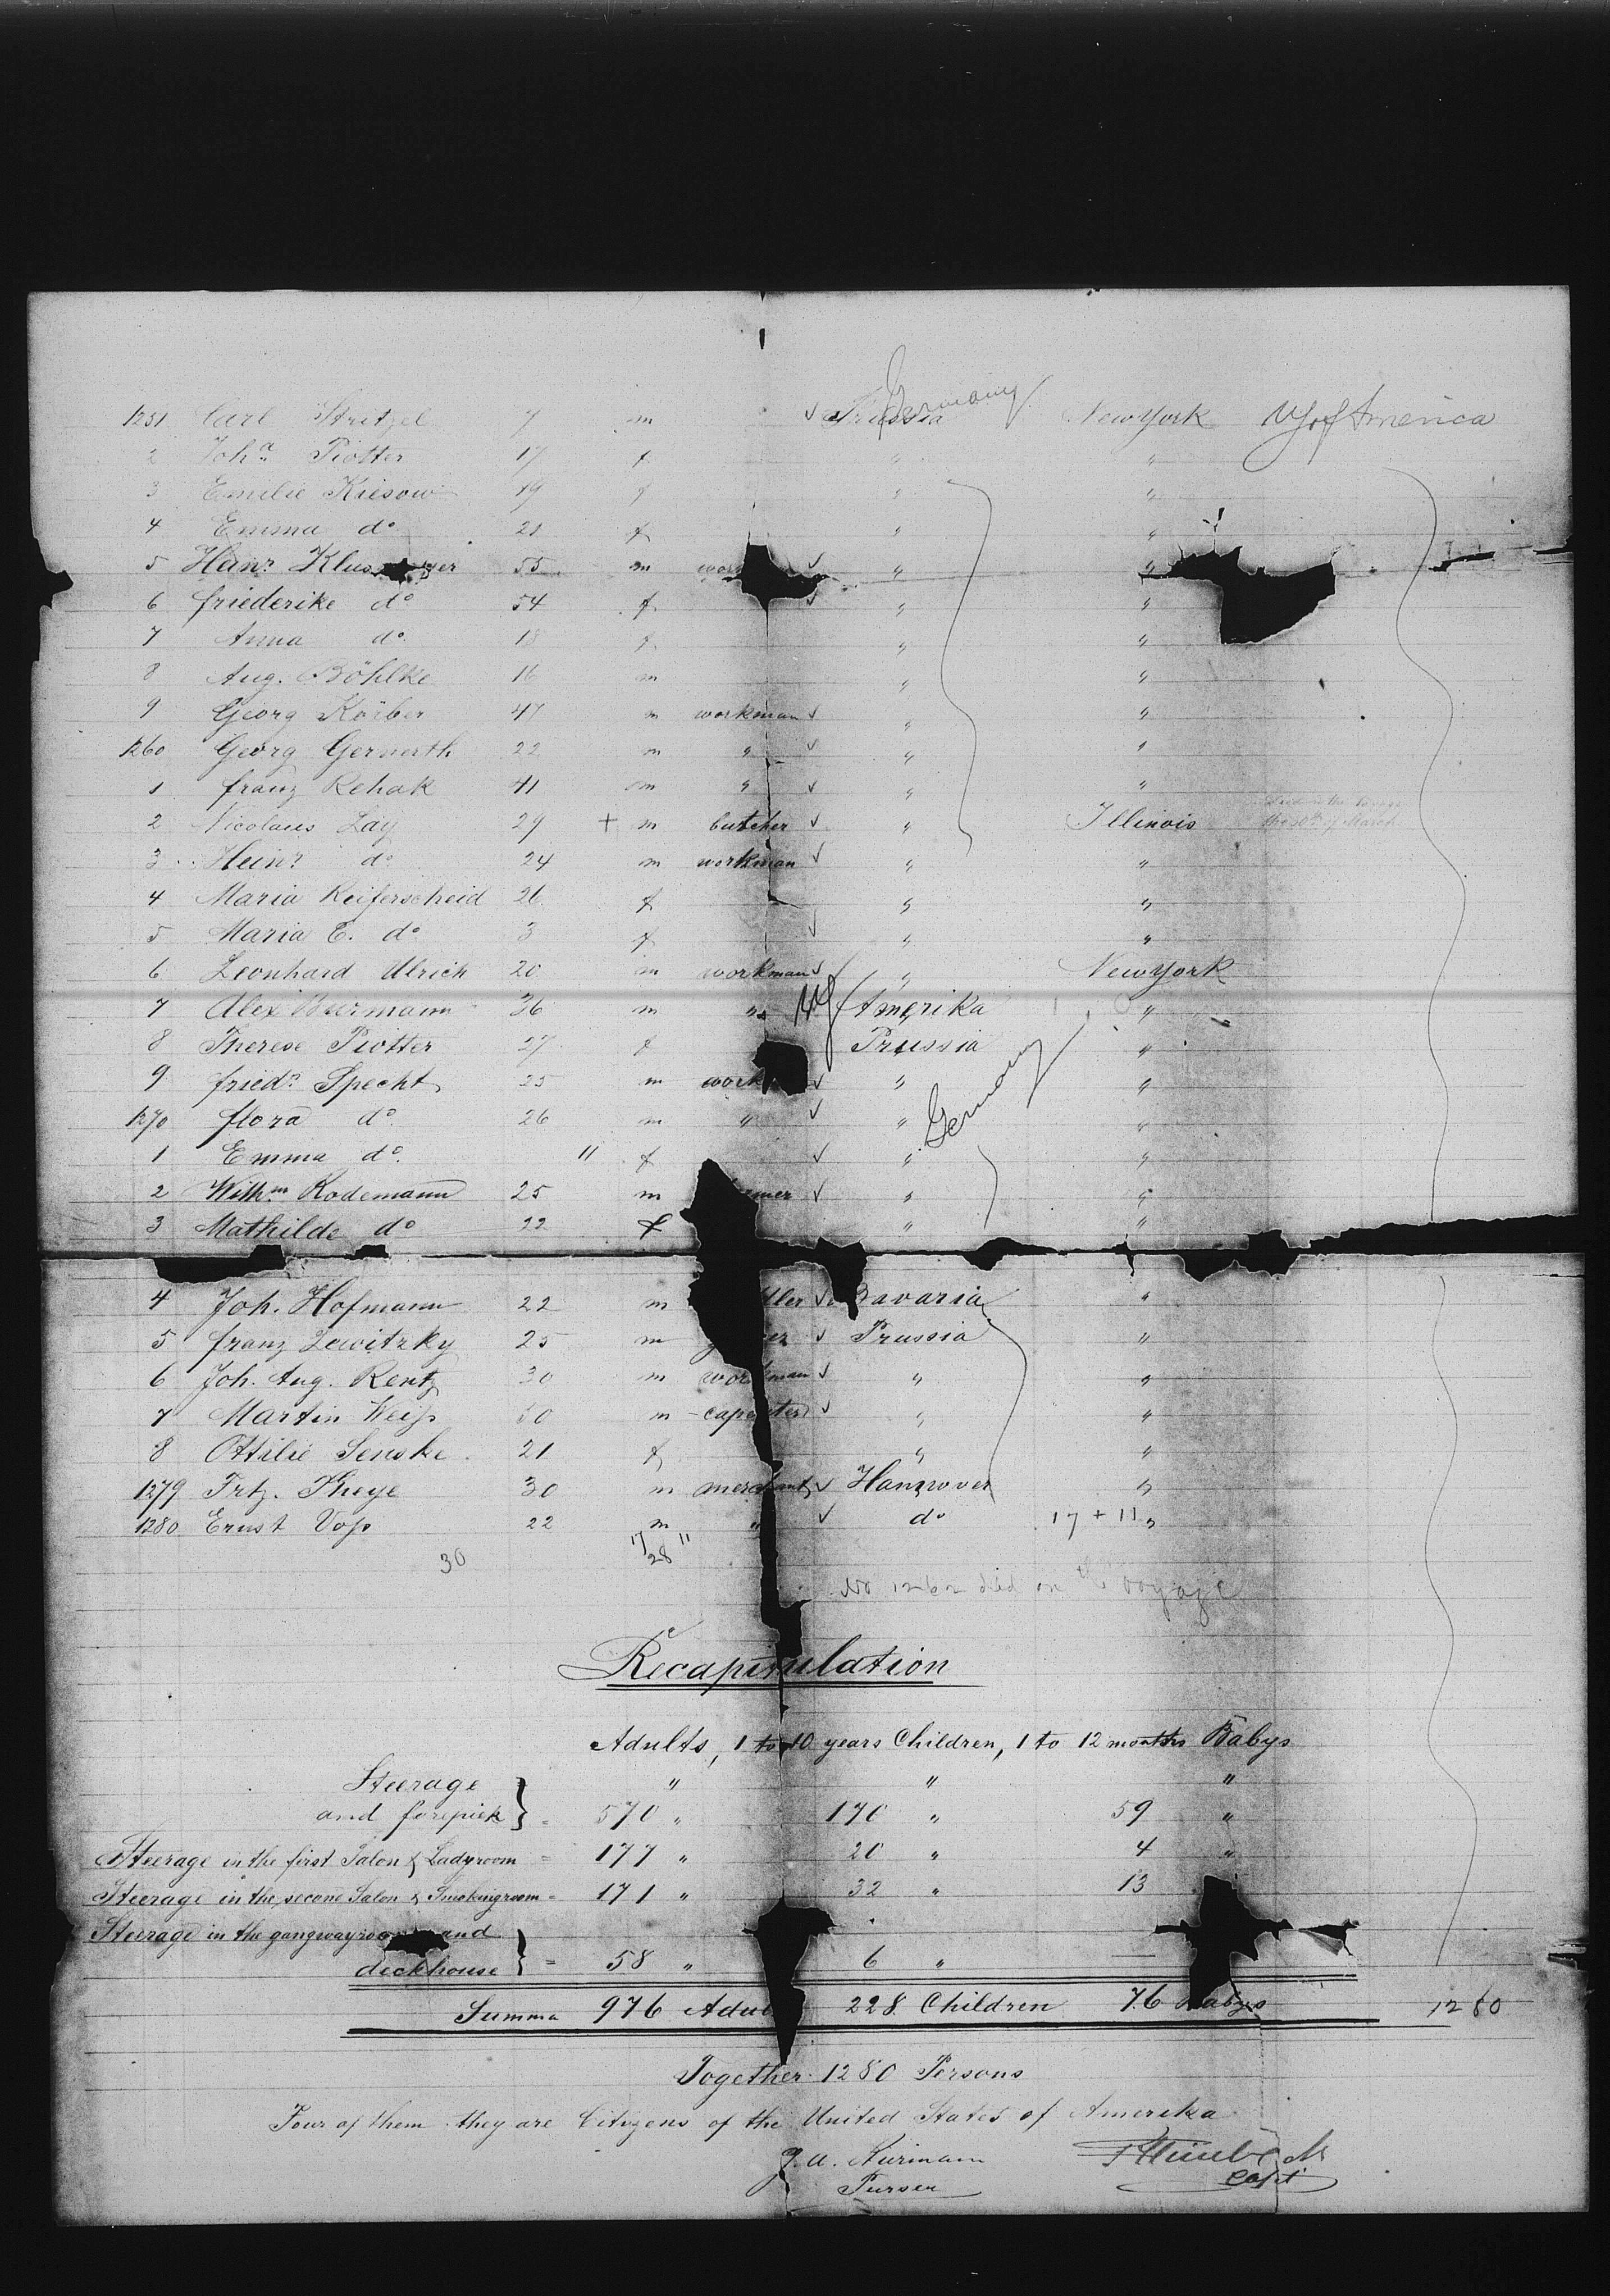 Germany
1251 Carl Stritzel 7 m ✓ Prussia New York US of America
2 Joh.a Piotter 17 f " "
3 Emilie Kiesow 19 f " "
4 Emma do 21 f " "
5 Heinr. Klus yer 55 m wor ✓ " "
6 friederike do 54 f ✓ " "
7 Anna do 18 f " "
8 Aug. Böhlke 16 m " "
9 Georg Körber 47 m workman ✓ " "
1260 Georg Gernerth 22 m " ✓ " "
1 franz Rehak 41 m " ✓ " "
2 Nicolaus Lay 29 + m butcher ✓ " Illinois died on the voyage the 10th of March
3 Heinr do 24 m workman ✓ " "
4 Maria Reiferscheid 26 f " "
5 Maria E. do 3 f ✓ " "
6 Leonhard Ulrich 20 m workman ✓ " New York
7 Alex Burmann 36 m " US of Amerika "
8 Therese Piotter 27 f Prussia "
9 fried.r Specht 25 m work ✓ " "
Germany
1270 flora do 26 m " ✓ " "
1 Emma do. 11 f ✓ " "
2 Wilh.m Rodemann 25 m mer ✓ " "
3 Mathilde do 22 f " "
4 Joh. Hofmann 22 m ller ✓ Bavaria "
5 franz Lewitzky 25 m g er ✓ Prussia "
6 Joh. Aug. Rentz 30 m workman ✓ " "
7 Martin Weiss m carpenter ✓ " "
8 Ottilie Senske 21 f " "
1279 Frtz. Theye 30 m merchant ✓ Hannover "
1280 Ernst Voss 22 m " ✓ do 17 + 11 "
30 17 11
28
No 1262 died on the voyage
Recapitulation
Adults, 1 to 10 years Children, 1 to 12 months Babys
Steerage " " "
and forepiek } = 570 " 170 " 59 "
Steerage in the first Salon & Ladyroom = 177 " 20 " 4 "
Steerage in the second Salon & Smokingroom = 171 " 32 " 13
Steerage in the gangwayroo and
deckhouse } = 58 " 6 " —
Summa 976 Adul 228 Children 76 Babys 1280
Together 1280 Persons
Four of them they are Citizens of the United States of Amerika
Purser Capt